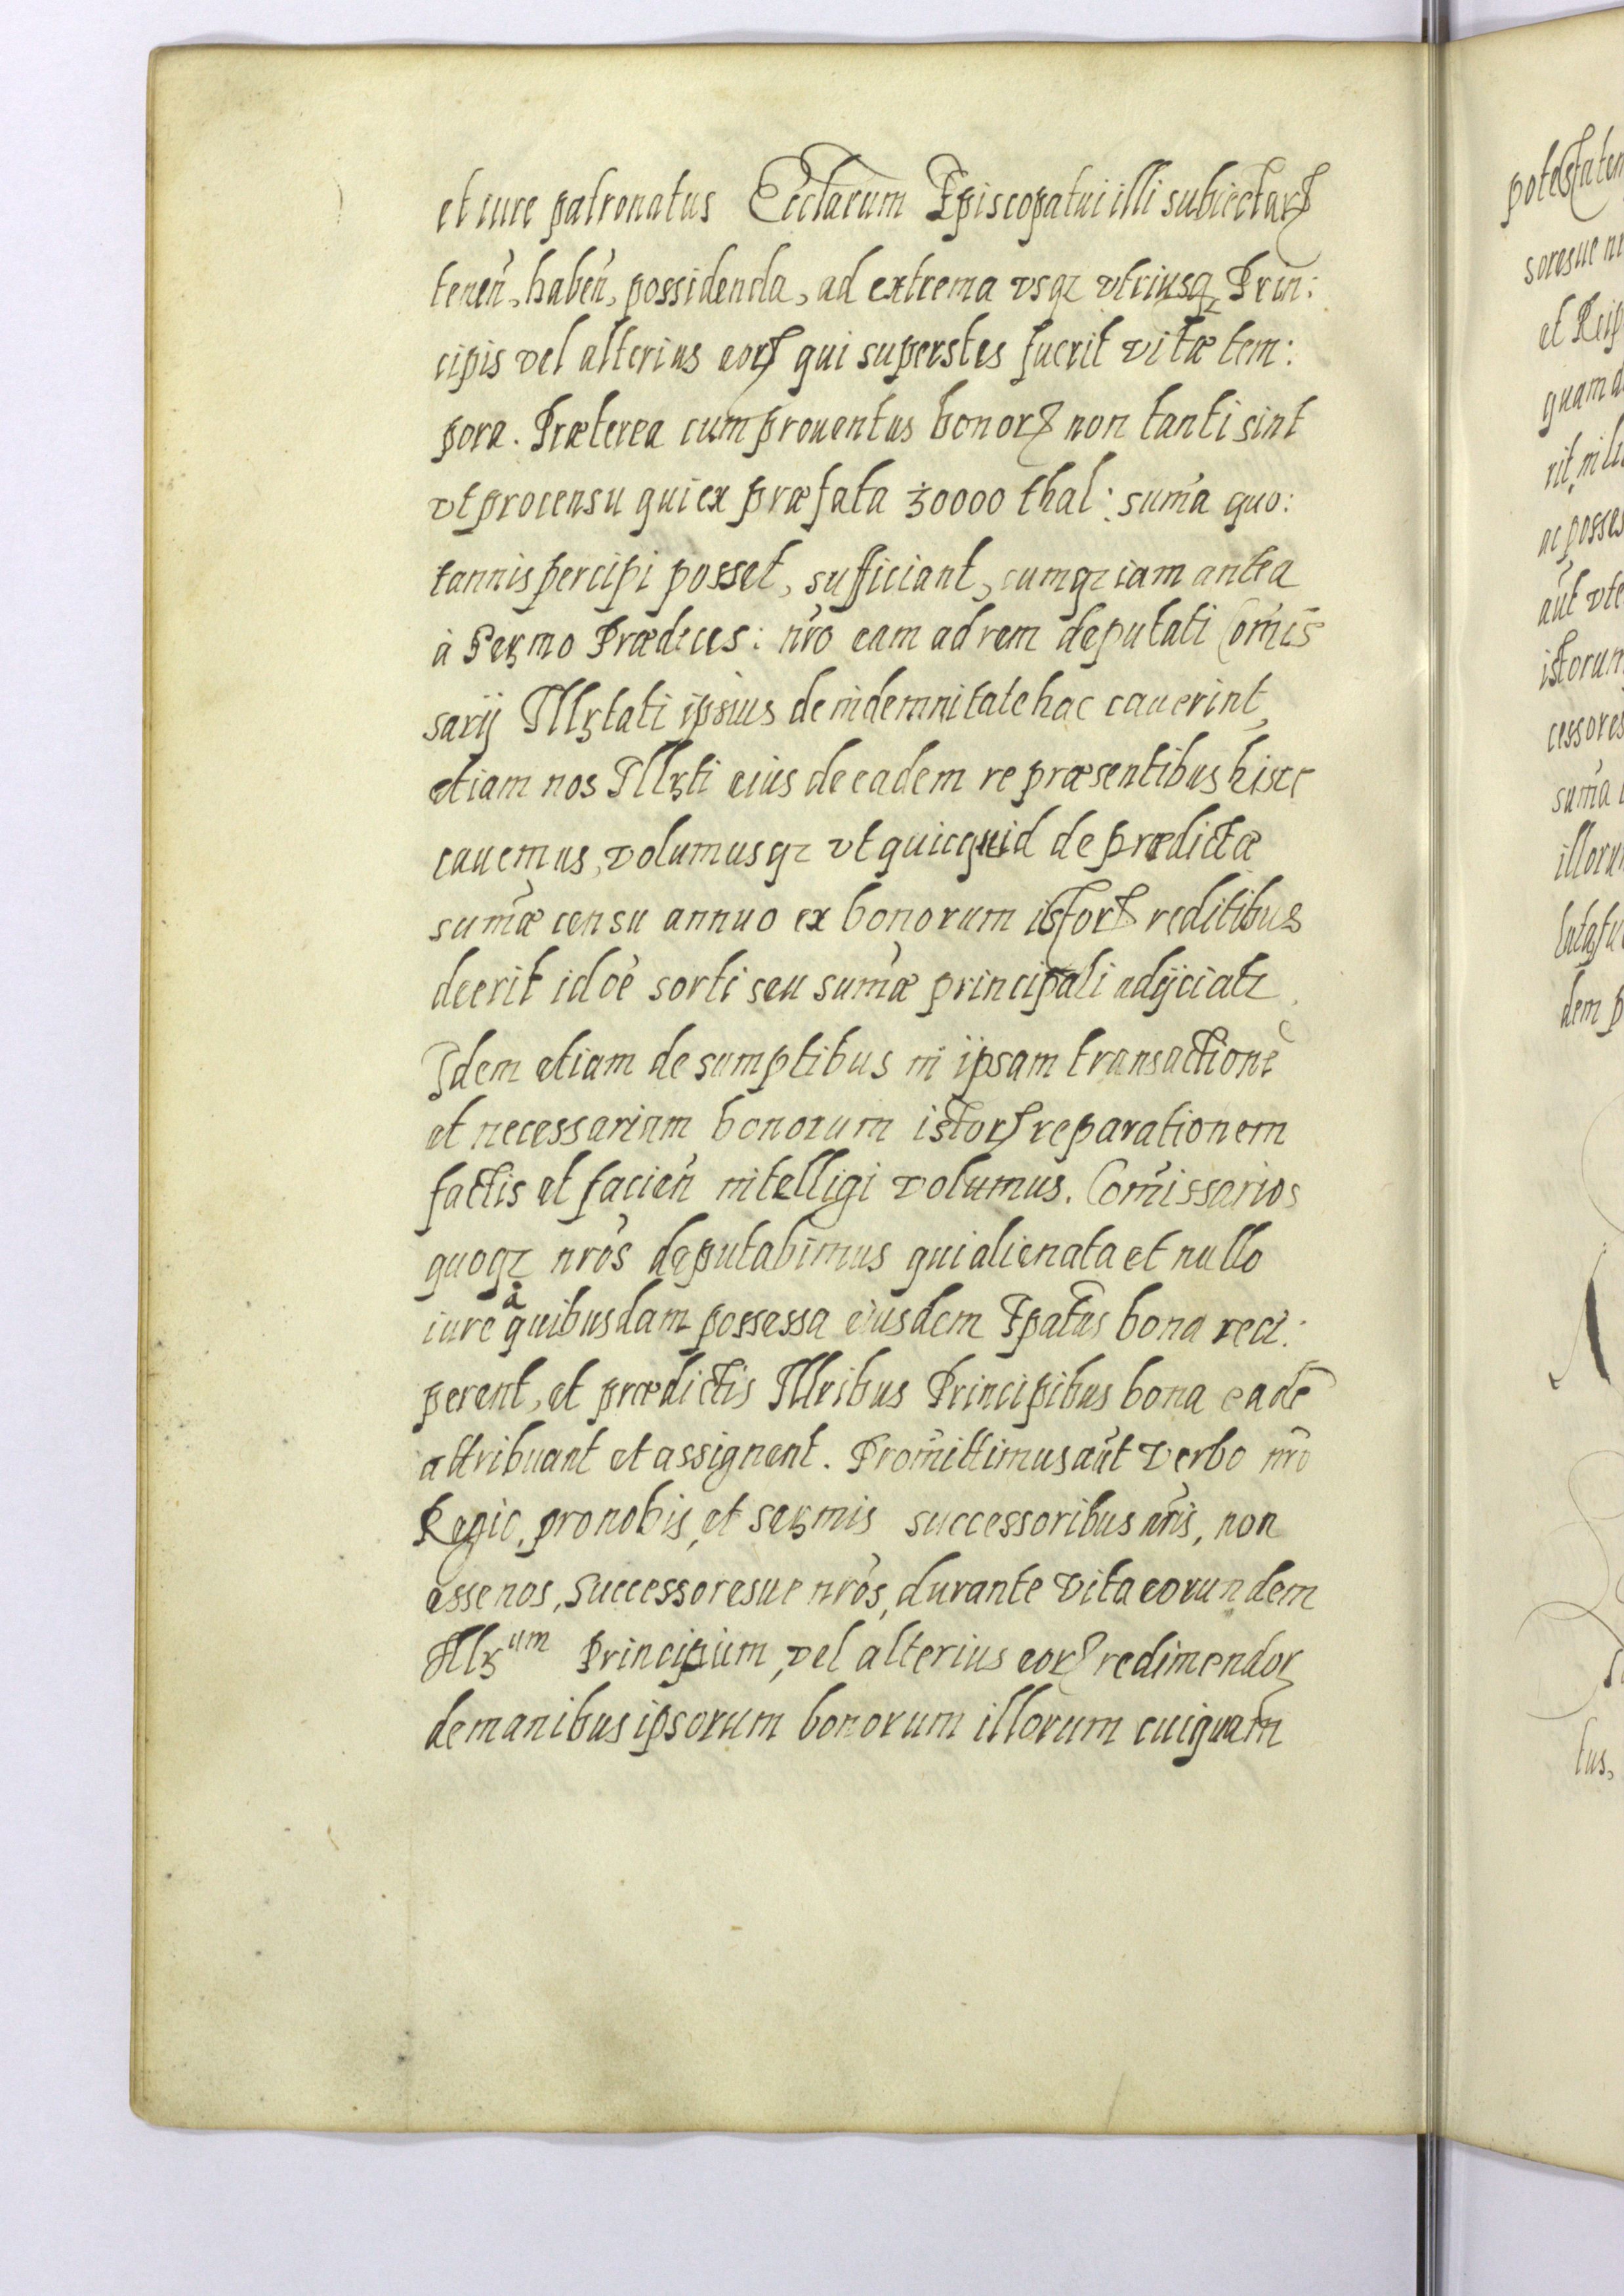 et iure patronatus Ecclarum Episcopatui illi subiectarꝝ
tenen̄, haben̄, possidenda, ad extrema vsqꝫ vtriusqꝫ Prin:
cipis vel alterius eorꝝ qui superstes fuerit vitæ tem:
pora. Præterea cum prouentus bonorꝝ non tanti sint
vt pro censu qui ex præfata 30000 thal: sum̄a quo:
tannis percipi posset, sufficiant, cumqꝫ iam antea
à Serꝫmo Prædeces: nr̄o eam ad rem deputati Com̄is
sarij Illꝫtati ipsius de indemnitate hac cauerint,
etiam nos Illꝫti eius de eadem re præsentibus hisce
cauemus, volumusqꝫ vt quicquid de prædictæ
sum̄æ censu annuo ex bonorum istorꝝ reditibus
deerit id oē sorti seu sum̄æ principali adijciatꝛ.
Idem etiam de sumptibus in ipsam transactionē
et necessariam bonorum istorꝝ reparationem
factis et facien̄ intelligi volumus. Com̄issarios
quoqꝫ nr̄os deputabimus qui alienata et nullo
iure à quibusdam possessa eiusdem Ep̄atus bona reci:
perent, et prædictis Illribus Principibus bona eadē
attribuant et assignent. Prom̄ittimus aūt verbo nr̄o
Regio, pro nobis, et serꝫmis successoribus nr̄is, non
esse nos, Successoresue nr̄os, durante vita eorundem
Illꝫum Principium, vel alterius eorꝝ redimendorꝝ
de manibus ipsorum bonorum illorum cuiquam
potestatem
soresue
et Reip
quam
rit,
ac posses
aūt vte
istorum
cessores
sum̄a
illorum
dem p
tus,